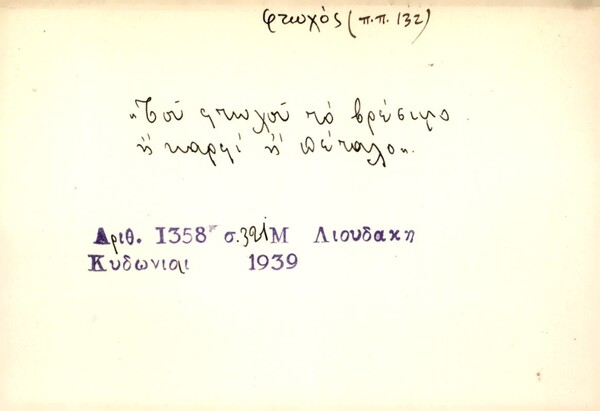 φτωχός (π.π. 132)
„Τοῦ φτωχοῦ τὸ βρέσιμο
ἢ καρφί ἢ πέταλο".
Αριθ. 1358 σ. 321 Μ Λιουδακη
Κυδωνιαι 1939